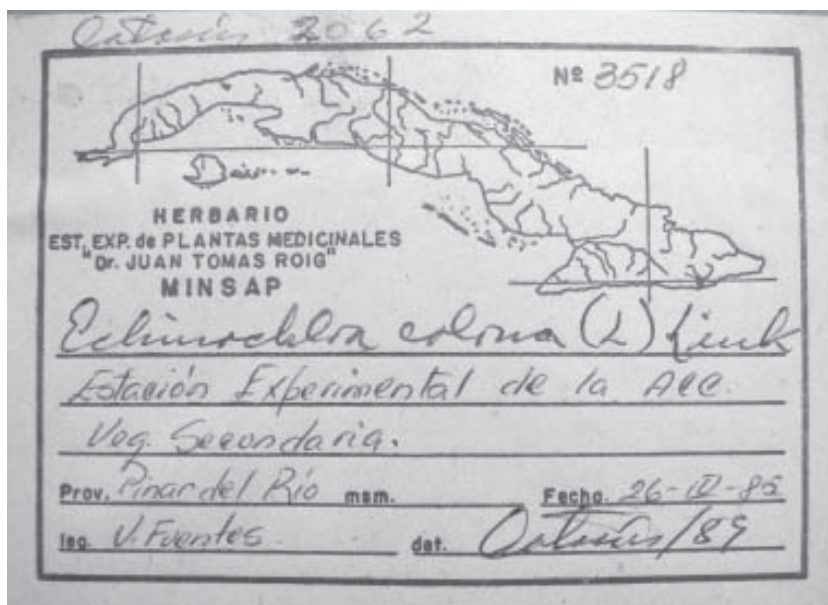 Catasús 2062
Nº 3518
HERBARIO
EST. EXP. de PLANTAS MEDICINALES
"Dr. JUAN TOMAS ROIG"
MINSAP
Echinochloa colona (L) Link
Estación Experimental de la ACC.
Veg. Secondaria.
Prov. Pinar del Río msm. Fecha. 26-IV-85
leg. V. Fuentes. det. Catasús/89